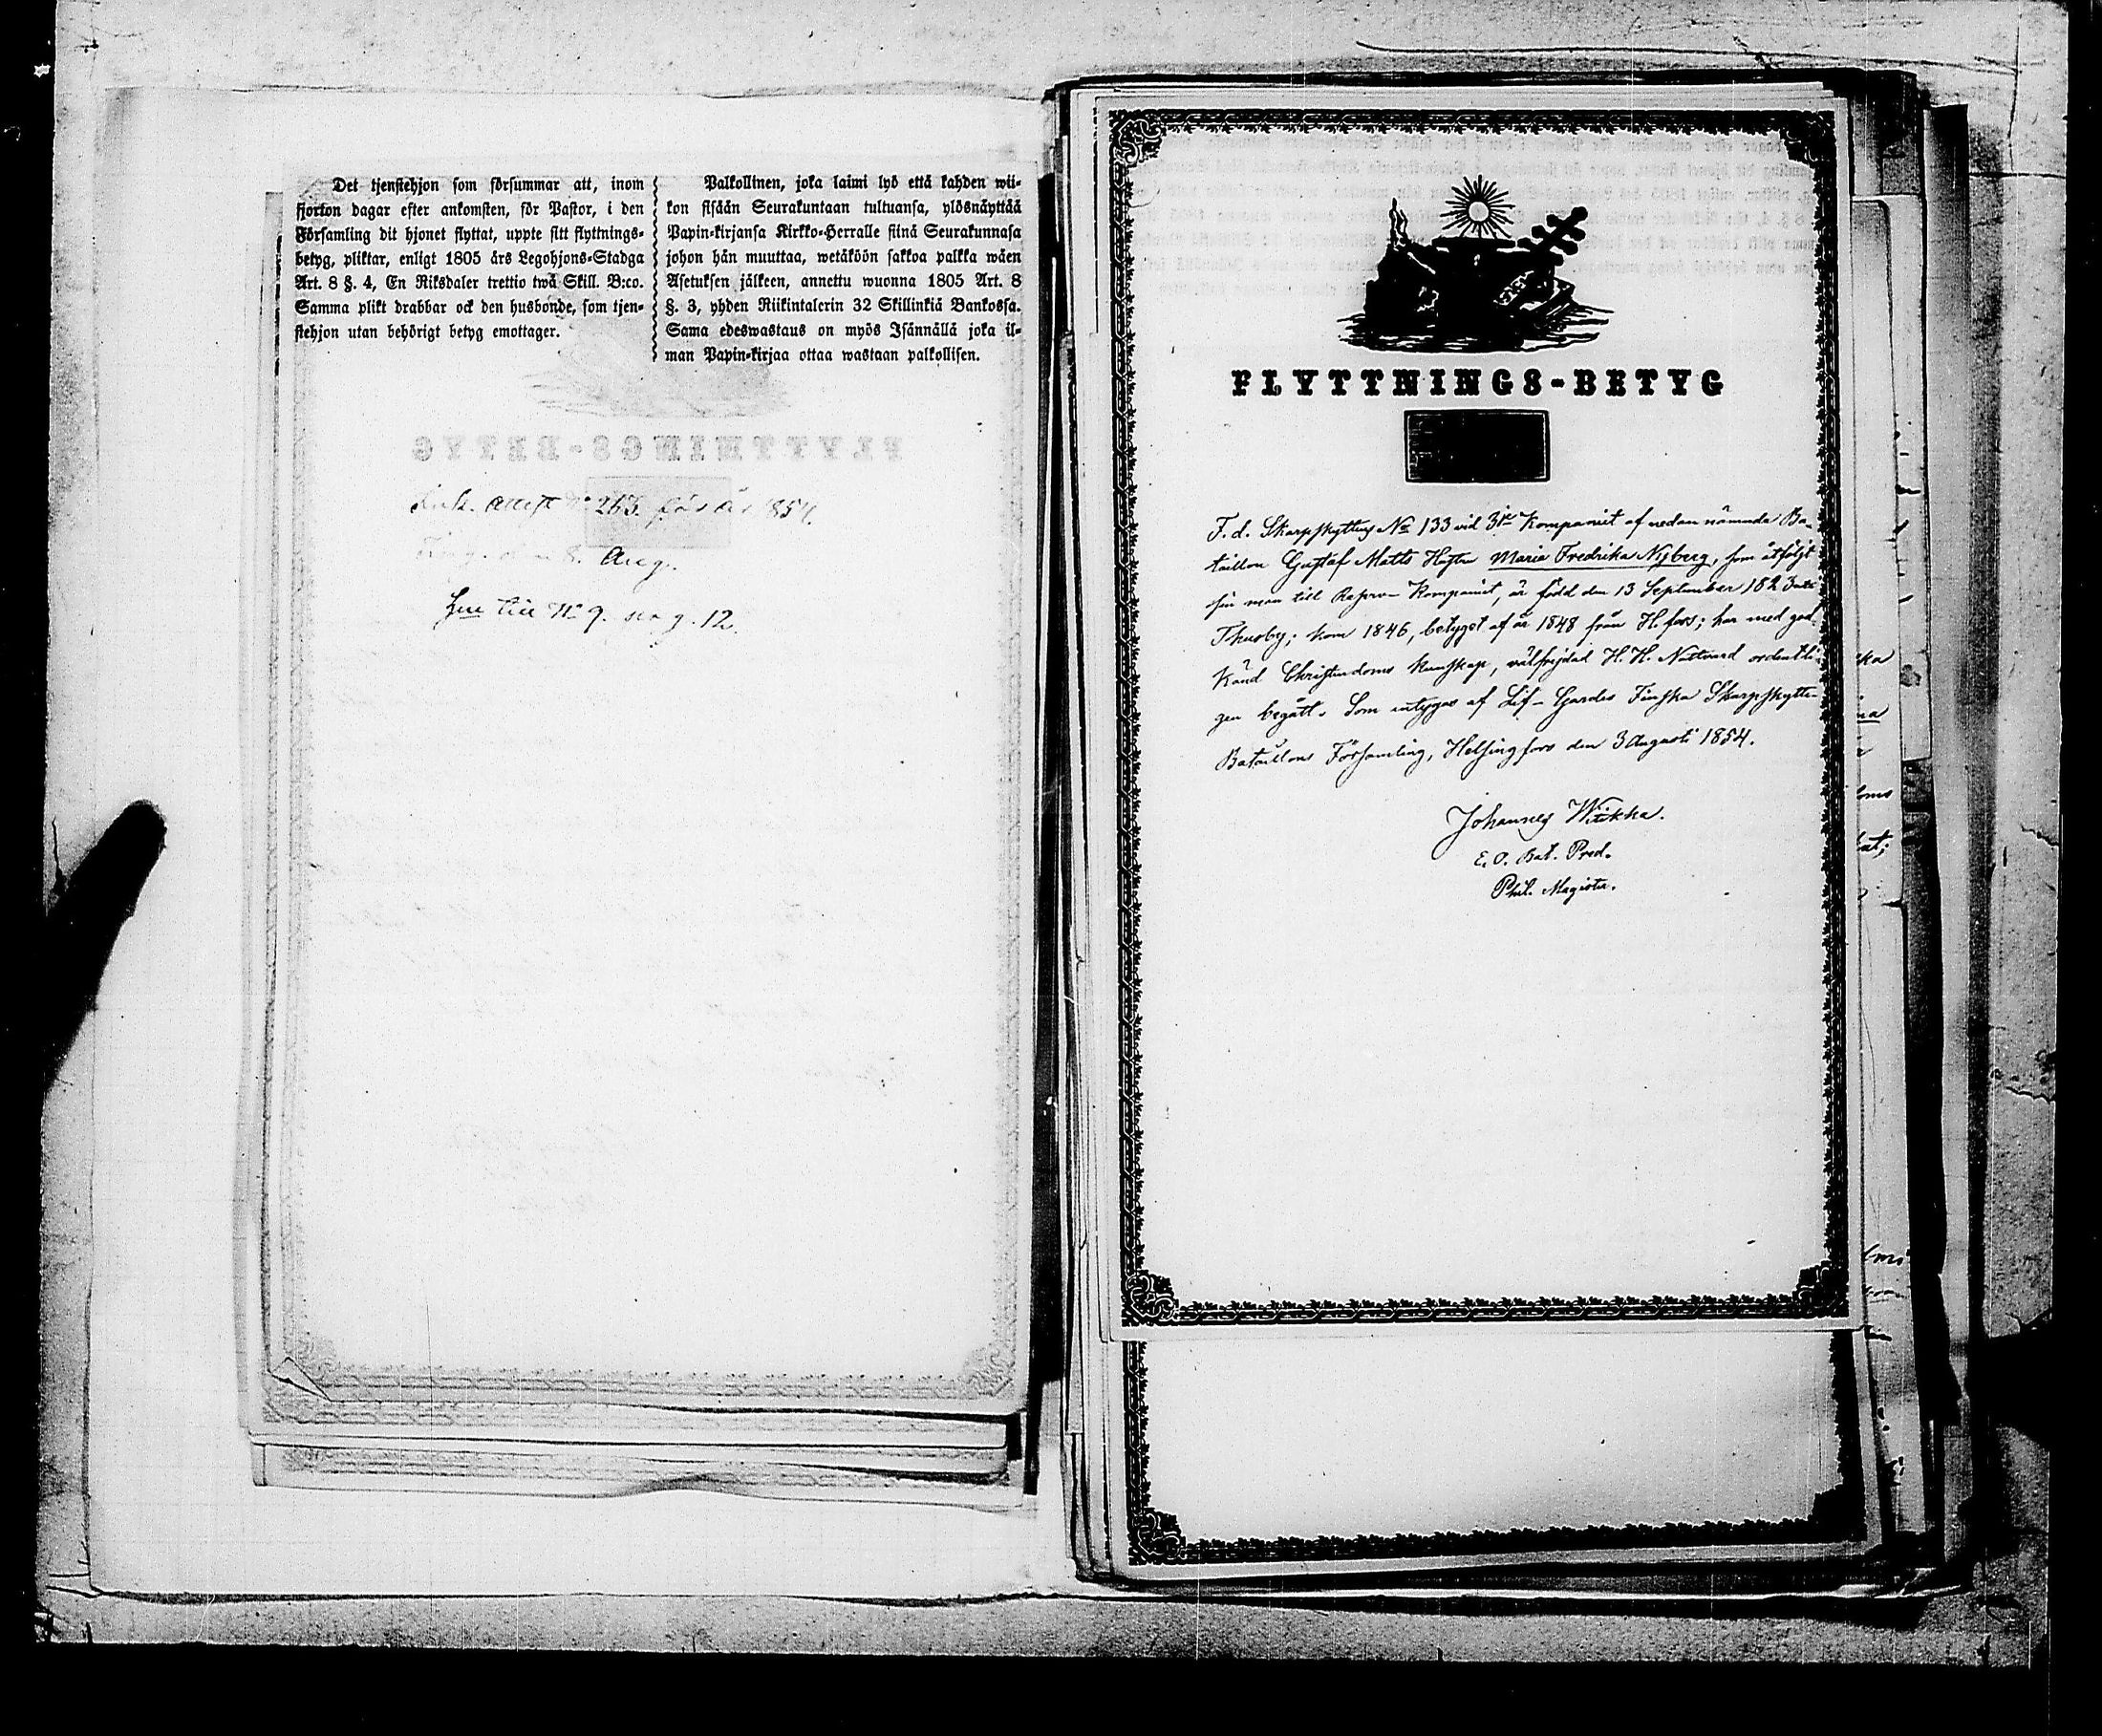 Det tjenstehjon som försummar att, inom
fjorton dagar efter ankomsten, för Pastor, i den
Församling dit hjonet flyttat, uppte sitt flyttnings-
betyg, pliktar, enligt 1805 års Legohjons-Stadga
Art. 8 §. 4, En Riksdaler trettio twå Skill. B:co.
Samma plikt drabbar ock den husbonde, som tjen-
stehjon utan behörigt betyg emottager.
Palkollinen, joka laimi lyö että kahden wii-
kon sisään Seurakuntaan tultuansa, ylösnäyttää
Papin-kirjansa Kirkko-Herralle siinä Seurakunnasa
johon hän muuttaa, wetäköön sakkoa palkka wäen
Asetuksen jälkeen, annettu wuonna 1805 Art. 8
§. 3, yhden Riikintalerin 32 Skillinkiä Bankossa.
Sama edeswastaus on myös Isännällä joka il-
man Papin-kirjaa ottaa wastaan palkollisen.
Ink. attest No 263. för år 1854.
d. 8. Aug.
till No 9. pag. 12.
FLYTTNINGS-BETYG
F. d. Skarpskyttens No 133 vid 3je Kompaniet af nedan nämnda Ba-
taillon Gustaf Matts Hustru Maria Fredrika Nyberg, som åtföljt
sin man till Reserv- Kompaniet, är född den 13 September 1823 uti
Thusby; kom 1846, betyget af år 1848 från H.fors; har med god-
känd Christendoms kunskap, välfrejdad H. H. Nattvard ordentli-
gen begått. Som intygas af Lif- Gardes Finska Skarpskytte-
Bataillons Församling, Helsingfors den 3 Augusti 1854.
Johannes Witikka.
E. O. Bat. Pred.
Phil. Magister.